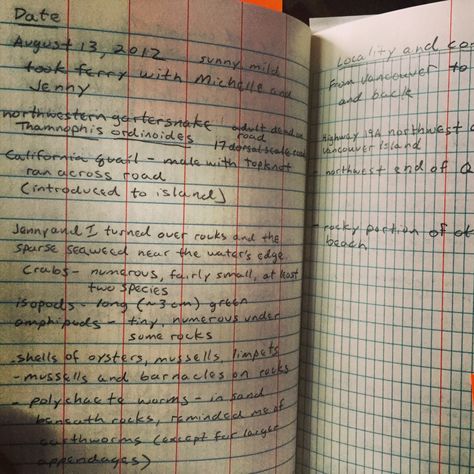 Date
August 13, 2012 sunny mild
took ferry with Michelle and
Jenny
northwestern gartersnake 1 adult dead on
Thamnophis ordinoides road
17 dorsal scale rows
California quail - male with topknot
ran across road
(introduced to island)
Jenny and I turned over rocks and the
sparse seaweed near the water's edge
Crabs - numerous, fairly small, at least
two species
isopods - long (~3cm) green
amphipods - tiny, numerous under
some rocks
shells of oysters, mussels, limpets
- mussels and barnacles on rocks
- polychaete worms - in sand
beneath rocks, reminded me of
earthworms (except for larger
appendages)
Locality and
From Vancouver to
and back
Highway 19A northwest
Vancouver Island
- northwest end of
- rocky portion of
beach